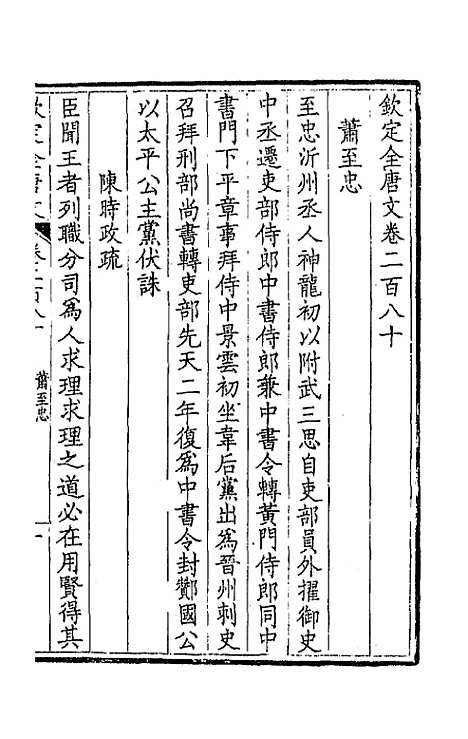 欽定全唐文卷二百八十
蕭至忠
至忠沂州丞人神龍初以附武三思自吏部員外擢御史
中丞遷吏部侍郎中書侍郎兼中書令轉黃門侍郎同中
書門下平章事拜侍中景雲初坐韋后黨出為晉州刺史
召拜刑部尚書轉吏部先天二年復為中書令封酇國公
以太平公主黨伏誅
陳時政疏
臣聞王者列職分司為人求理求理之道必在用賢得其
欽定全唐文
卷二百八十
蕭至忠
一